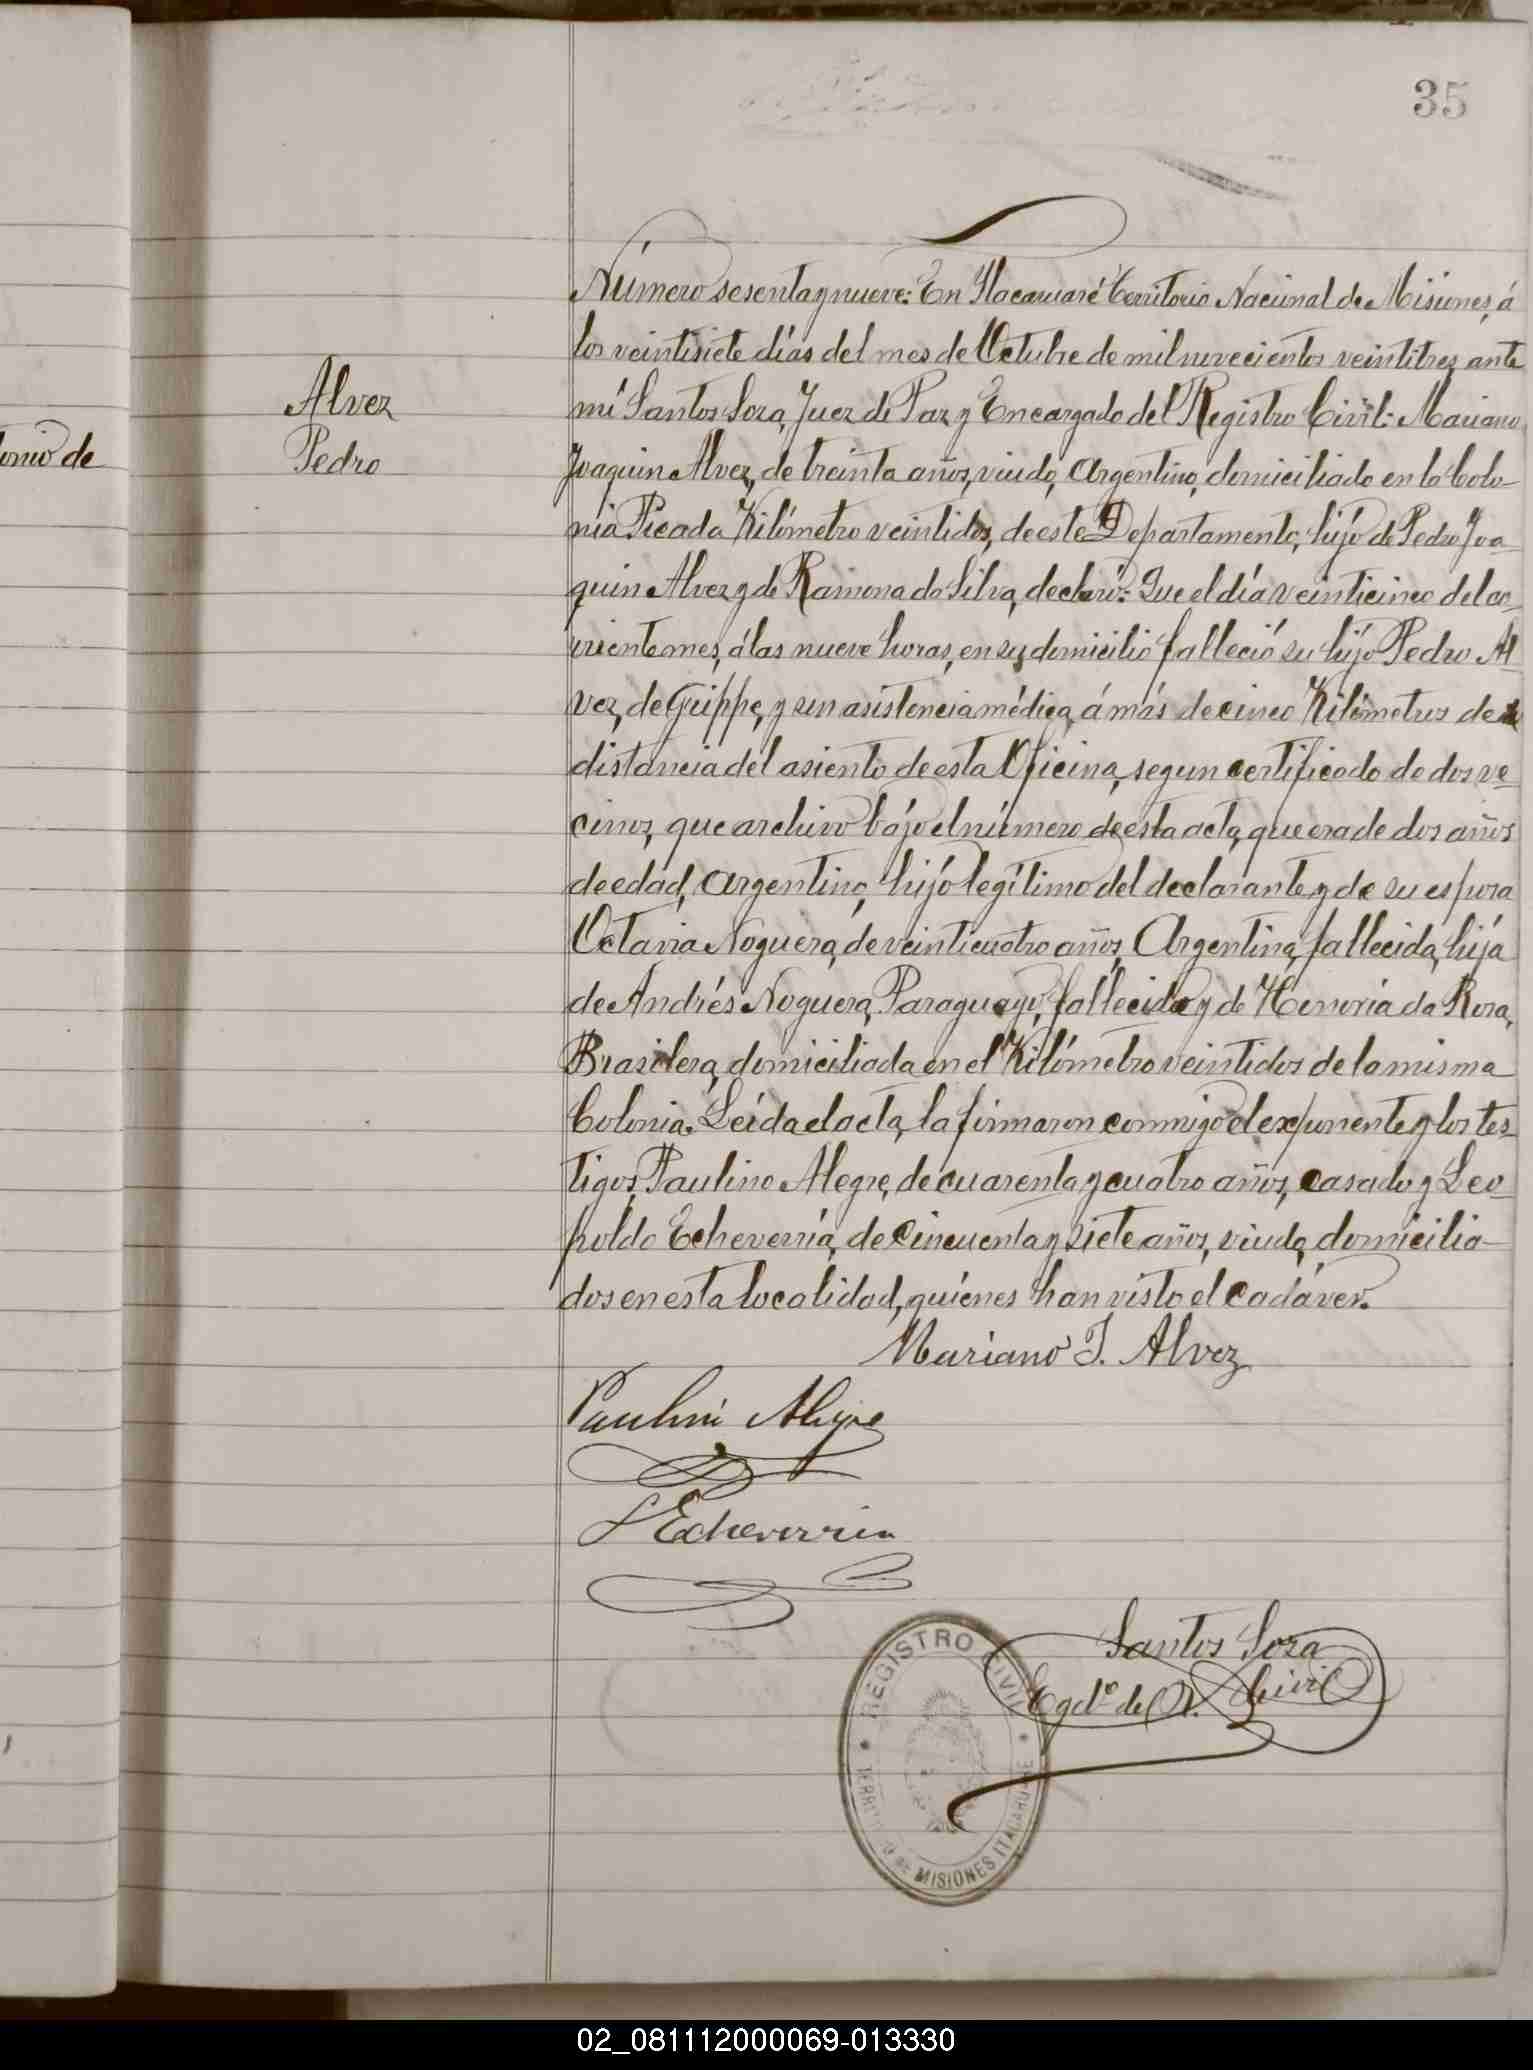 35
Número sesenta y nueve: En Itacaruaré Territorio Nacional de Misiones, á
los veintisiete días del mes de Octubre de mil novecientos veintitres, ante
mí Santos Soza, Juez de Paz y Encargado del Registro Civil: Mariano
Alvez
Pedro
onio de
Joaquin Alvez, de treinta años, viudo, Argentino, domiciliado en la Colo-
nia Picada Kilómetro veintidos, de este Departamento, hijo de Pedro Joa-
quin Alvez y de Ramona da Silva, declaró: Que el día veinticinco del co-
rriente mes, á las nueve horas, en su domicilio falleció su hijo Pedro Al-
vez, de Grippe, y sin asistencia médica, á más de cinco Kilómetros de
distancia del asiento de esta Oficina, segun certificado de dos ve-
cinos, que archivo bájo el número de esta acta, que era de dos años
de edad, Argentino, hijo legítimo del declarante y de su esposa
Octavia Noguera, de veinticuatro años, Argentina, fallecida, hija
de Andrés Noguera, Paraguayo, fallecido y de Honoria da Rosa,
Brasilera, domiciliada en el Kilómetro veintidos de la misma
Colonia. Leida el acta, la firmaron conmigo el exponente y los tes-
tigos, Paulino Alegre, de cuarenta y cuatro años, casado y Leo-
poldo Echeverría, de cincuenta y siete años, viudo, domicilia-
dos en esta localidad, quiénes han visto el cadáver.
Mariano J. Alvez
Paulino Alegre
L Echeverria
Santos Soza
Egdo. de R. Civil
REGISTRO CIVIL
TERRITORIO DE MISIONES ITACARUARE
02_081112000069-013330